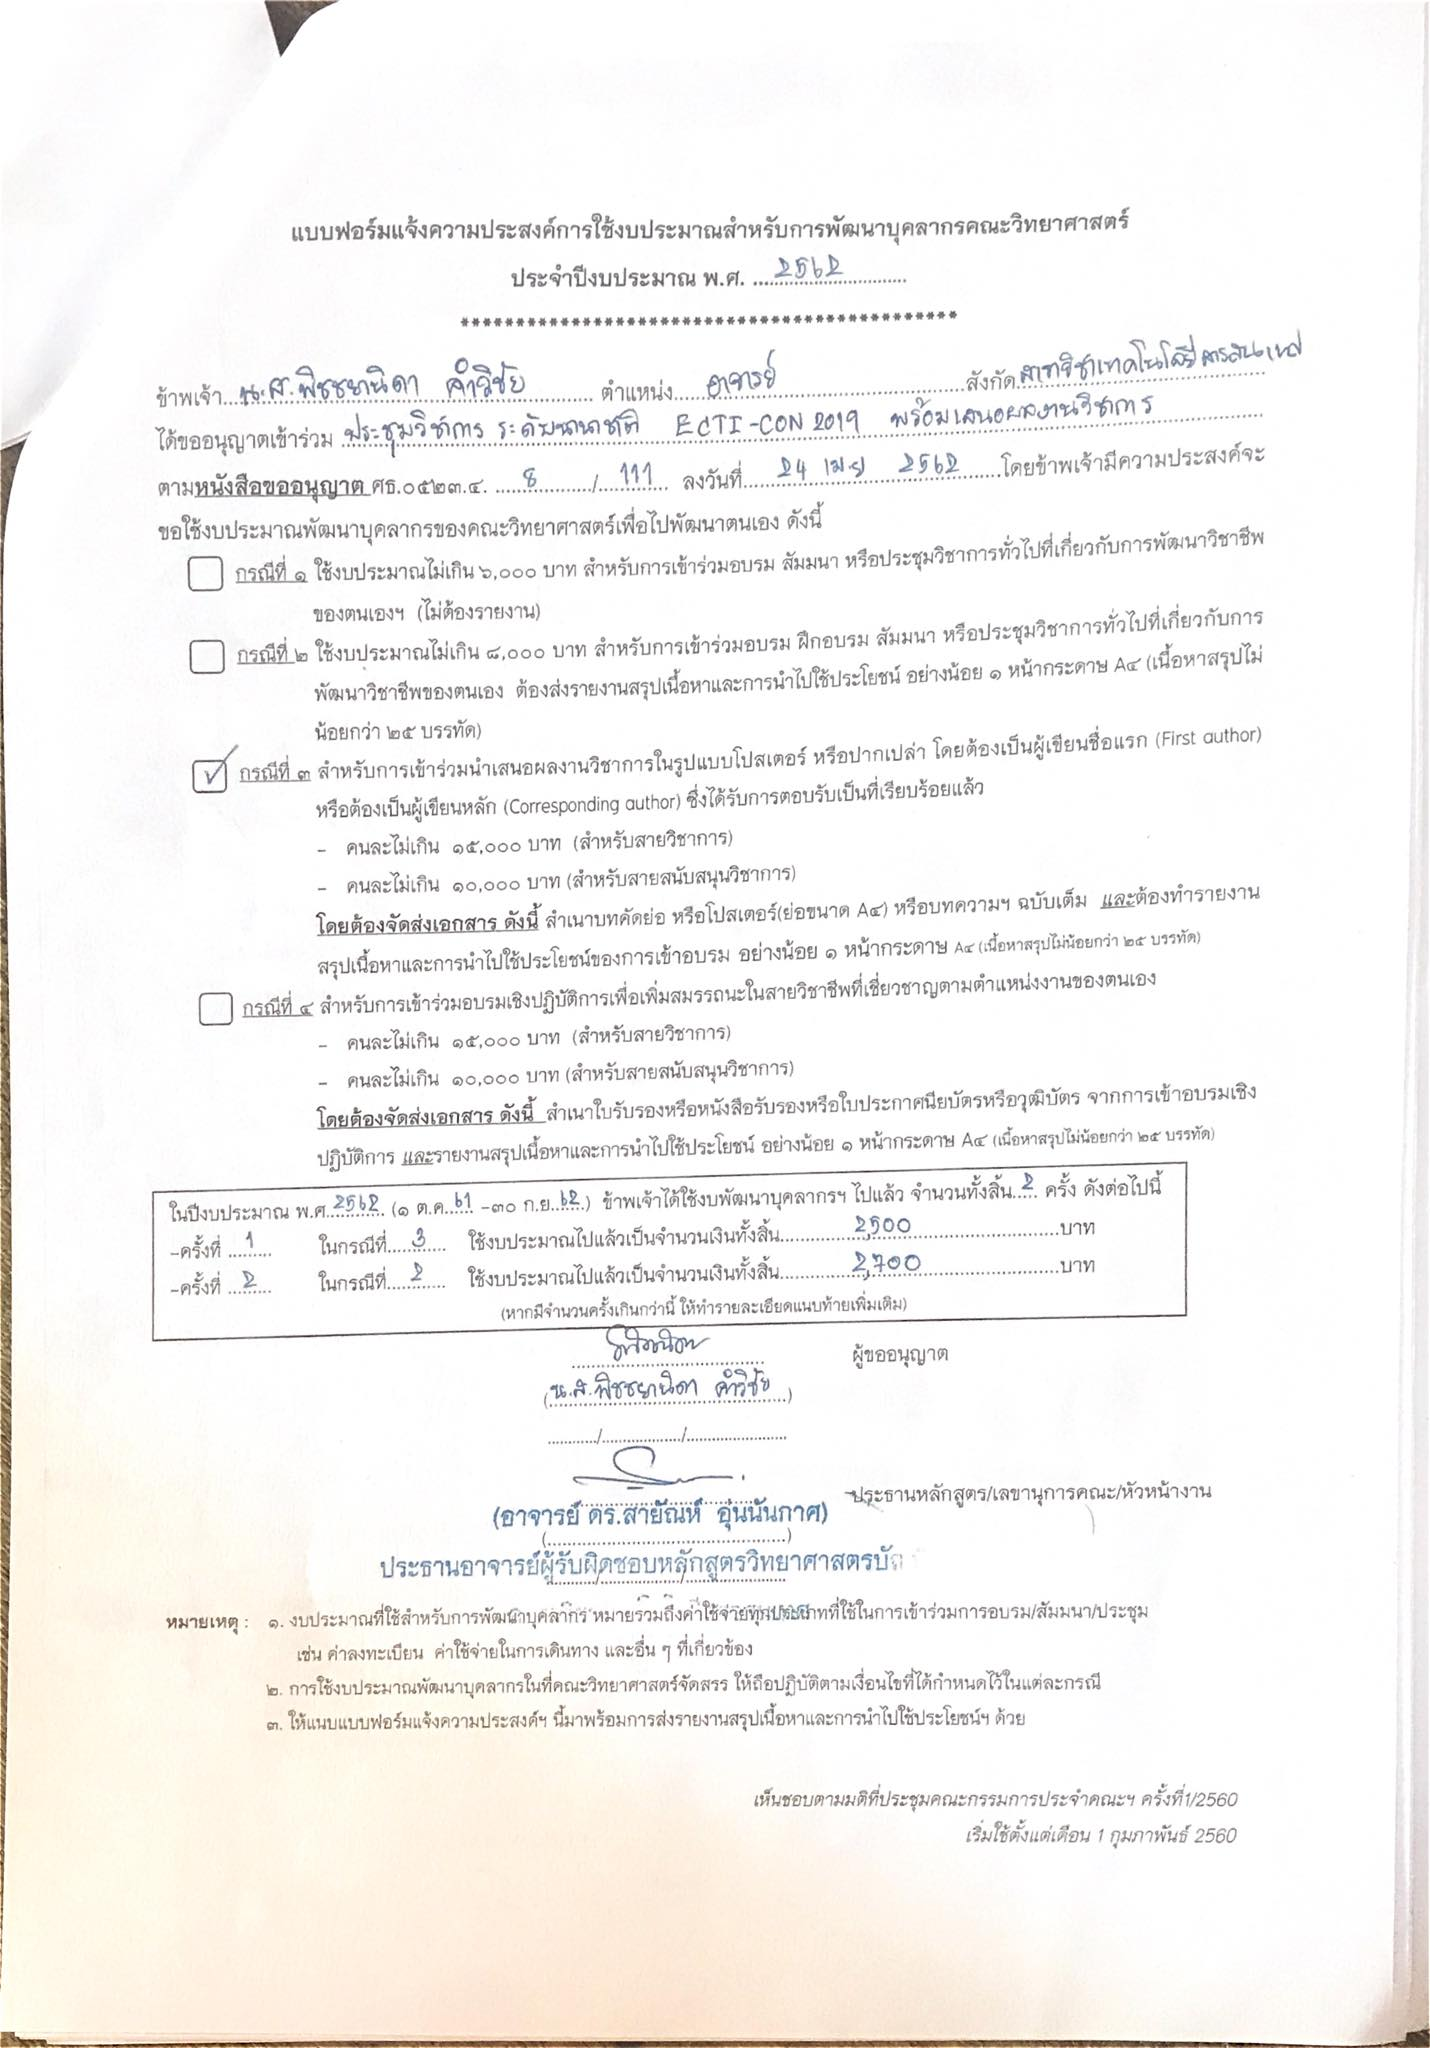 แบบฟอร์มแจ้งความประสงค์การใช้งบประมาณสำหรับการพัฒนาบุคลากรคณะวิทยาศาสตร์
ประจำปีงบประมาณ พ.ศ. ....2562....
********************************************
ข้าพเจ้า...น.ส.พิชชยานิดา คำวิชัย... ตำแหน่ง...อาจารย์...สังกัด.สาขาวิชาเทคโนโลยีสารสนเทศ
ได้ขออนุญาตเข้าร่วม ประชุมวิชาการ ระดับนานาชาติ ECTI-CON 2019 พร้อมเสนอผลงานวิชาการ
ตามหนังสือขออนุญาต ศธ.๐๕๒๓.๔. ...8.../...111... ลงวันที่...24 เม.ย 2562...โดยข้าพเจ้ามีความประสงค์จะ
ขอใช้งบประมาณพัฒนาบุคลากรของคณะวิทยาศาสตร์เพื่อไปพัฒนาตนเอง ดังนี้
กรณีที่ ๑ ใช้งบประมาณไม่เกิน ๖,๐๐๐ บาท สำหรับการเข้าร่วมอบรม สัมมนา หรือประชุมวิชาการทั่วไปที่เกี่ยวกับการพัฒนาวิชาชีพ
ของตนเองฯ (ไม่ต้องรายงาน)
กรณีที่ ๒ ใช้งบประมาณไม่เกิน ๘,๐๐๐ บาท สำหรับการเข้าร่วมอบรม ฝึกอบรม สัมมนา หรือประชุมวิชาการทั่วไปที่เกี่ยวกับการ
พัฒนาวิชาชีพของตนเอง ต้องส่งรายงานสรุปเนื้อหาและการนำไปใช้ประโยชน์ อย่างน้อย ๑ หน้ากระดาษ A๔ (เนื้อหาสรุปไม่
น้อยกว่า ๒๕ บรรทัด)
✓ กรณีที่ ๓ สำหรับการเข้าร่วมนำเสนอผลงานวิชาการในรูปแบบโปสเตอร์ หรือปากเปล่า โดยต้องเป็นผู้เขียนชื่อแรก (First author)
หรือต้องเป็นผู้เขียนหลัก (Corresponding author) ซึ่งได้รับการตอบรับเป็นที่เรียบร้อยแล้ว
- คนละไม่เกิน ๑๕,๐๐๐ บาท (สำหรับสายวิชาการ)
- คนละไม่เกิน ๑๐,๐๐๐ บาท (สำหรับสายสนับสนุนวิชาการ)
โดยต้องจัดส่งเอกสาร ดังนี้ สำเนาบทคัดย่อ หรือโปสเตอร์(ย่อขนาด A๔) หรือบทความฯ ฉบับเต็ม และต้องทำรายงาน
สรุปเนื้อหาและการนำไปใช้ประโยชน์ของการเข้าอบรม อย่างน้อย ๑ หน้ากระดาษ A๔ (เนื้อหาสรุปไม่น้อยกว่า ๒๕ บรรทัด)
กรณีที่ ๔ สำหรับการเข้าร่วมอบรมเชิงปฏิบัติการเพื่อเพิ่มสมรรถนะในสายวิชาชีพที่เชี่ยวชาญตามตำแหน่งงานของตนเอง
- คนละไม่เกิน ๑๕,๐๐๐ บาท (สำหรับสายวิชาการ)
- คนละไม่เกิน ๑๐,๐๐๐ บาท (สำหรับสายสนับสนุนวิชาการ)
โดยต้องจัดส่งเอกสาร ดังนี้ สำเนาใบรับรองหรือหนังสือรับรองหรือใบประกาศนียบัตรหรือวุฒิบัตร จากการเข้าอบรมเชิง
ปฏิบัติการ และรายงานสรุปเนื้อหาและการนำไปใช้ประโยชน์ อย่างน้อย ๑ หน้ากระดาษ A๔ (เนื้อหาสรุปไม่น้อยกว่า ๒๕ บรรทัด)
ในปีงบประมาณ พ.ศ.2562 (๑ ต.ค.61 -๓๐ ก.ย.62) ข้าพเจ้าได้ใช้งบพัฒนาบุคลากรฯ ไปแล้ว จำนวนทั้งสิ้น.2. ครั้ง ดังต่อไปนี้
-ครั้งที่ ..1.. ในกรณีที่..3.. ใช้งบประมาณไปแล้วเป็นจำนวนเงินทั้งสิ้น...2,500...บาท
-ครั้งที่ ..2.. ในกรณีที่..2.. ใช้งบประมาณไปแล้วเป็นจำนวนเงินทั้งสิ้น...2,700...บาท
(หากมีจำนวนครั้งเกินกว่านี้ ให้ทำรายละเอียดแนบท้ายเพิ่มเติม)
ผู้ขออนุญาต
(น.ส.พิชชยานิดา คำวิชัย)
........../................/..................
ประธานหลักสูตร/เลขานุการคณะ/หัวหน้างาน
(อาจารย์ ดร.สายัณห์ อุ่นนันกาศ)
ประธานอาจารย์ผู้รับผิดชอบหลักสูตรวิทยาศาสตรบัณ
หมายเหตุ : ๑. งบประมาณที่ใช้สำหรับการพัฒนาบุคลากร หมายรวมถึงค่าใช้จ่ายทุกประเภทที่ใช้ในการเข้าร่วมการอบรม/สัมมนา/ประชุม
เช่น ค่าลงทะเบียน ค่าใช้จ่ายในการเดินทาง และอื่น ๆ ที่เกี่ยวข้อง
๒. การใช้งบประมาณพัฒนาบุคลากรในที่คณะวิทยาศาสตร์จัดสรร ให้ถือปฏิบัติตามเงื่อนไขที่ได้กำหนดไว้ในแต่ละกรณี
๓. ให้แนบแบบฟอร์มแจ้งความประสงค์ฯ นี้มาพร้อมการส่งรายงานสรุปเนื้อหาและการนำไปใช้ประโยชน์ฯ ด้วย
เห็นชอบตามมติที่ประชุมคณะกรรมการประจำคณะฯ ครั้งที่1/2560
เริ่มใช้ตั้งแต่เดือน 1 กุมภาพันธ์ 2560